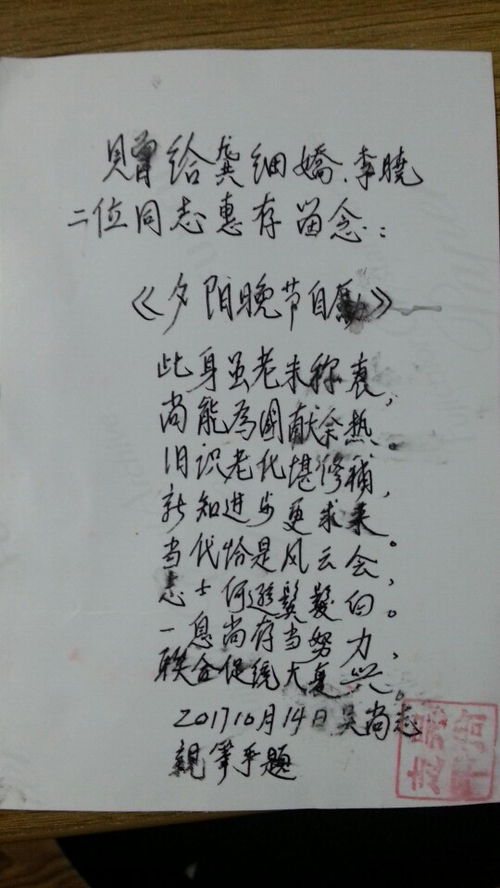 赠给龚细娇、李晓
二位同志惠存留念：
《夕阳晚节自勵》
此身虽老未称衰，
尚能為國献余热。
旧识老化堪修補，
新知进步更求来。
当代恰是风云会，
志士何遜鬓髮白。
一息尚存当努力，
联合促统大复兴。
201710月14日吴尚志
親筆手题